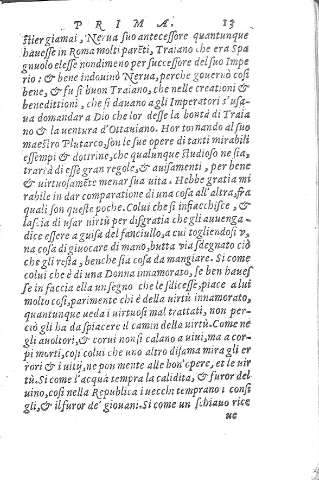 PRIMA. 13
stier giamai, Nerua suo antecessore quantunque
hauesse in Roma molti parẽti, Traiano che era Spa
gnuolo elesse nondimeno per successore del suo Impe
rio: & bene indouinò Nerua, perche gouernò così
bene, & fu sì buon Traiano, che nelle creationi &
beneditioni, che si dauano a gli Imperatori s'usa-
ua domandar a Dio che lor desse la bontà di Traia
no & la uentura d'Ottauiano. Hor tornando al suo
maestro Plutarco, son le sue opere di tanti mirabili
essempi & dottrine, che qualunque studioso ne sia,
trarrà di esse gran regole, & auisamenti, per bene
& uirtuosamẽte menar sua uita. Hebbe gratia mi
rabile in dar comparatione di una cosa all'altra, fra
quali son queste poche. Colui che si infiacchisce, &
lascia di usar uirtù per disgratia che gli auuenga-
dice essere a guisa del fanciullo, a cui togliendosi v,
na cosa di giuocare di mano, butta via sdegnato ciò
che gli resta, benche sia cosa da mangiare. Si come
colui che è di una Donna innamorato, se ben hauesse
se in faccia ella un segno che le sdicesse, piace a lui
molto così, parimente chi è della uirtù innamorato,
quantunque ueda i uirtuosi mal trattati, non per-
ciò gli ha da spiacere il camin della uirtù. Come ne
gli auoltori, & corui non si calano a uiui, ma a cor-
pi morti, così colui che uno altro disama mira gli er
rori & i uitij, ne pon mente alle bon'opere, et le uir
tù. Si come l'acqua tempra la calidita, & furor del
uino, così nella Republica i uecchi temprano i consi
gli, & il furor de' giouani. Si come un schiauo rice
ue